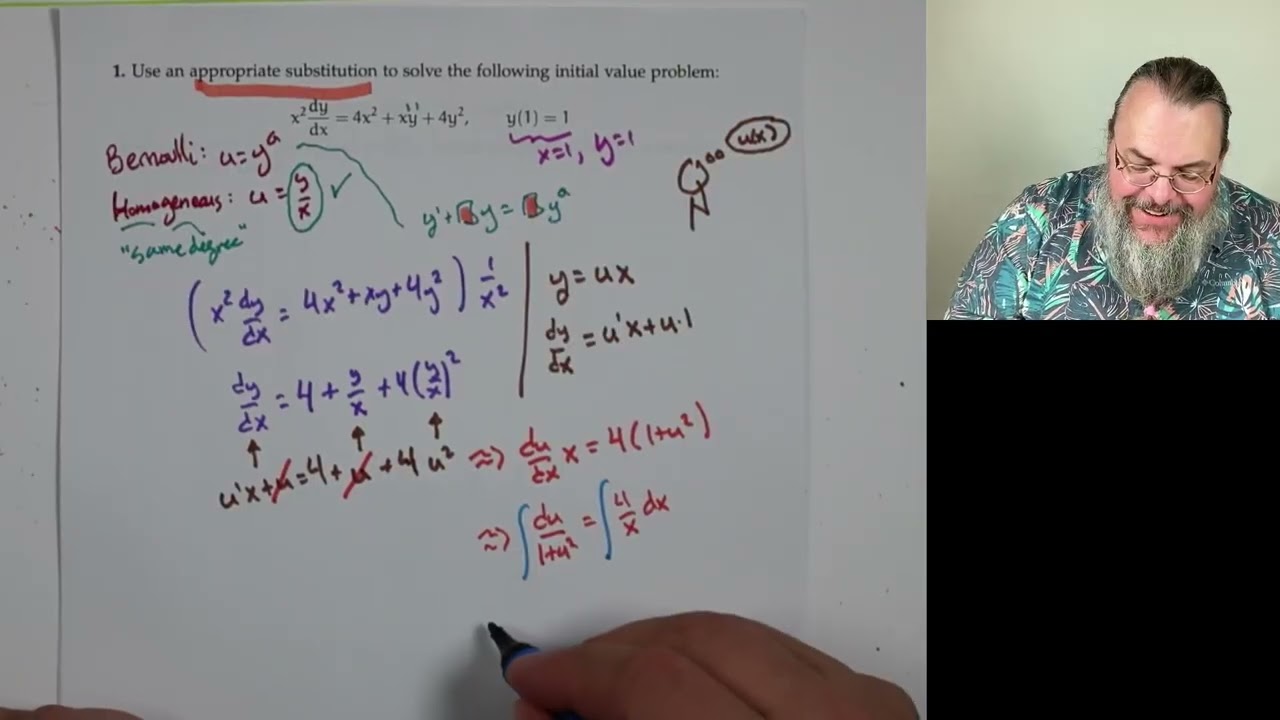 1. Use an appropriate substitution to solve the following initial value problem:
x² dy/dx = 4x² + xy + 4y², y(1) = 1
x=1, y=1
u(x)
Bernoulli: u=y^a
Homogeneous: u = y/x ✓
"same degree"
y'+ y = y^a
(x² dy/dx = 4x²+xy+4y²) 1/x²
y = ux
dy/dx = u'x+u·1
dy/dx = 4 + y/x + 4(y/x)²
u'x+u=4+u+4u² ⇒ du/dx x = 4(1+u²)
⇒ ∫ du/1+u² = ∫ 4/x dx